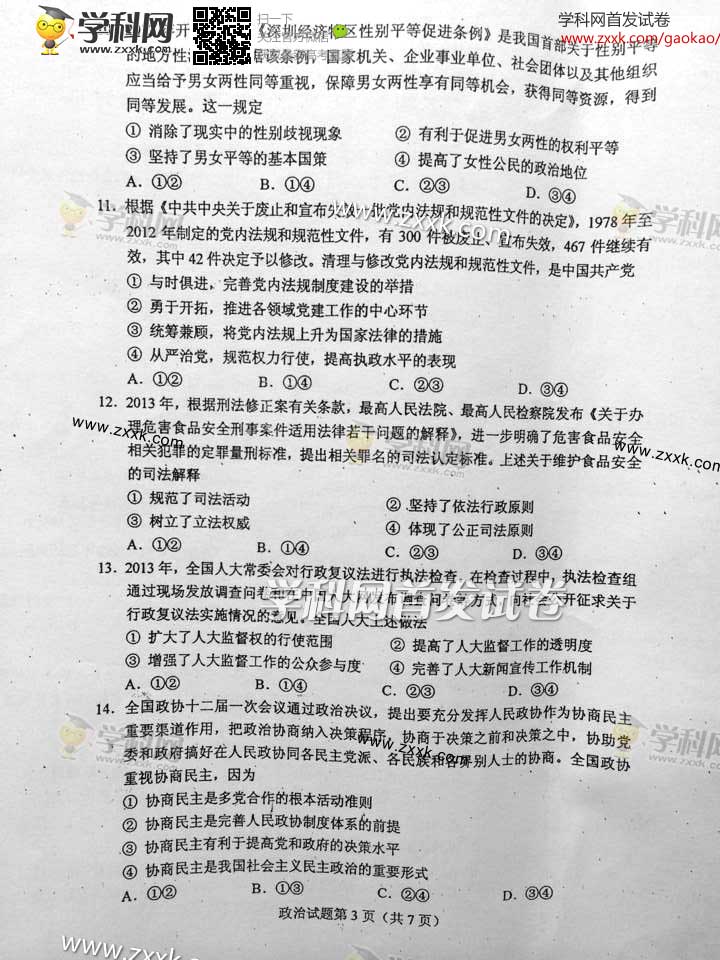 学科网
www.zxxk.com
扫一扫
学科网首发试卷
www.zxxk.com/gaokao/
《深圳经济特区性别平等促进条例》是我国首部关于性别平等
该条例，国家机关、企业事业单位、社会团体以及其他组织
应当给予男女两性同等重视，保障男女两性享有同等机会，获得同等资源，得到
同等发展。这一规定
① 消除了现实中的性别歧视现象 ② 有利于促进男女两性的权利平等
③ 坚持了男女平等的基本国策 ④ 提高了女性公民的政治地位
A．①② B．①④ C．②③ D．③④
11．根据《中共中央关于废止和宣布失效一批党内法规和规范性文件的决定》，1978 年至
2012 年制定的党内法规和规范性文件，有 300 件被废止、宣布失效，467 件继续有
效，其中 42 件决定予以修改。清理与修改党内法规和规范性文件，是中国共产党
① 与时俱进，完善党内法规制度建设的举措
② 勇于开拓，推进各领域党建工作的中心环节
③ 统筹兼顾，将党内法规上升为国家法律的措施
④ 从严治党，规范权力行使，提高执政水平的表现
A．①② B．①④ C．②③ D．③④
12．2013 年，根据刑法修正案有关条款，最高人民法院、最高人民检察院发布《关于办
理危害食品安全刑事案件适用法律若干问题的解释》，进一步明确了危害食品安全
相关犯罪的定罪量刑标准，提出相关罪名的司法认定标准。上述关于维护食品安全
的司法解释
① 规范了司法活动 ② 坚持了依法行政原则
③ 树立了立法权威 ④ 体现了公正司法原则
A．①② B．①④ C．②③ D．③④
13．2013 年，全国人大常委会对行政复议法进行执法检查。在检查过程中，执法检查组
通过现场发放调查问卷和在中国人大网发布 开征求关于
行政复议法实施情况的意见。全国人大上述做法
① 扩大了人大监督权的行使范围 ② 提高了人大监督工作的透明度
③ 增强了人大监督工作的公众参与度 ④ 完善了人大新闻宣传工作机制
A．①② B．①④ C．②③ D．③④
14．全国政协十二届一次会议通过政治决议，提出要充分发挥人民政协作为协商民主
重要渠道作用，把政治协商纳入决策程序，协商于决策之前和决策之中，协助党
委和政府搞好在人民政协同各民主党派、各民族和各界别人士的协商。全国政协
重视协商民主，因为
① 协商民主是多党合作的根本活动准则
② 协商民主是完善人民政协制度体系的前提
③ 协商民主有利于提高党和政府的决策水平
④ 协商民主是我国社会主义民主政治的重要形式
A．①② B．①③ C．②④ D．③④
政治试题第 3 页（共 7 页）